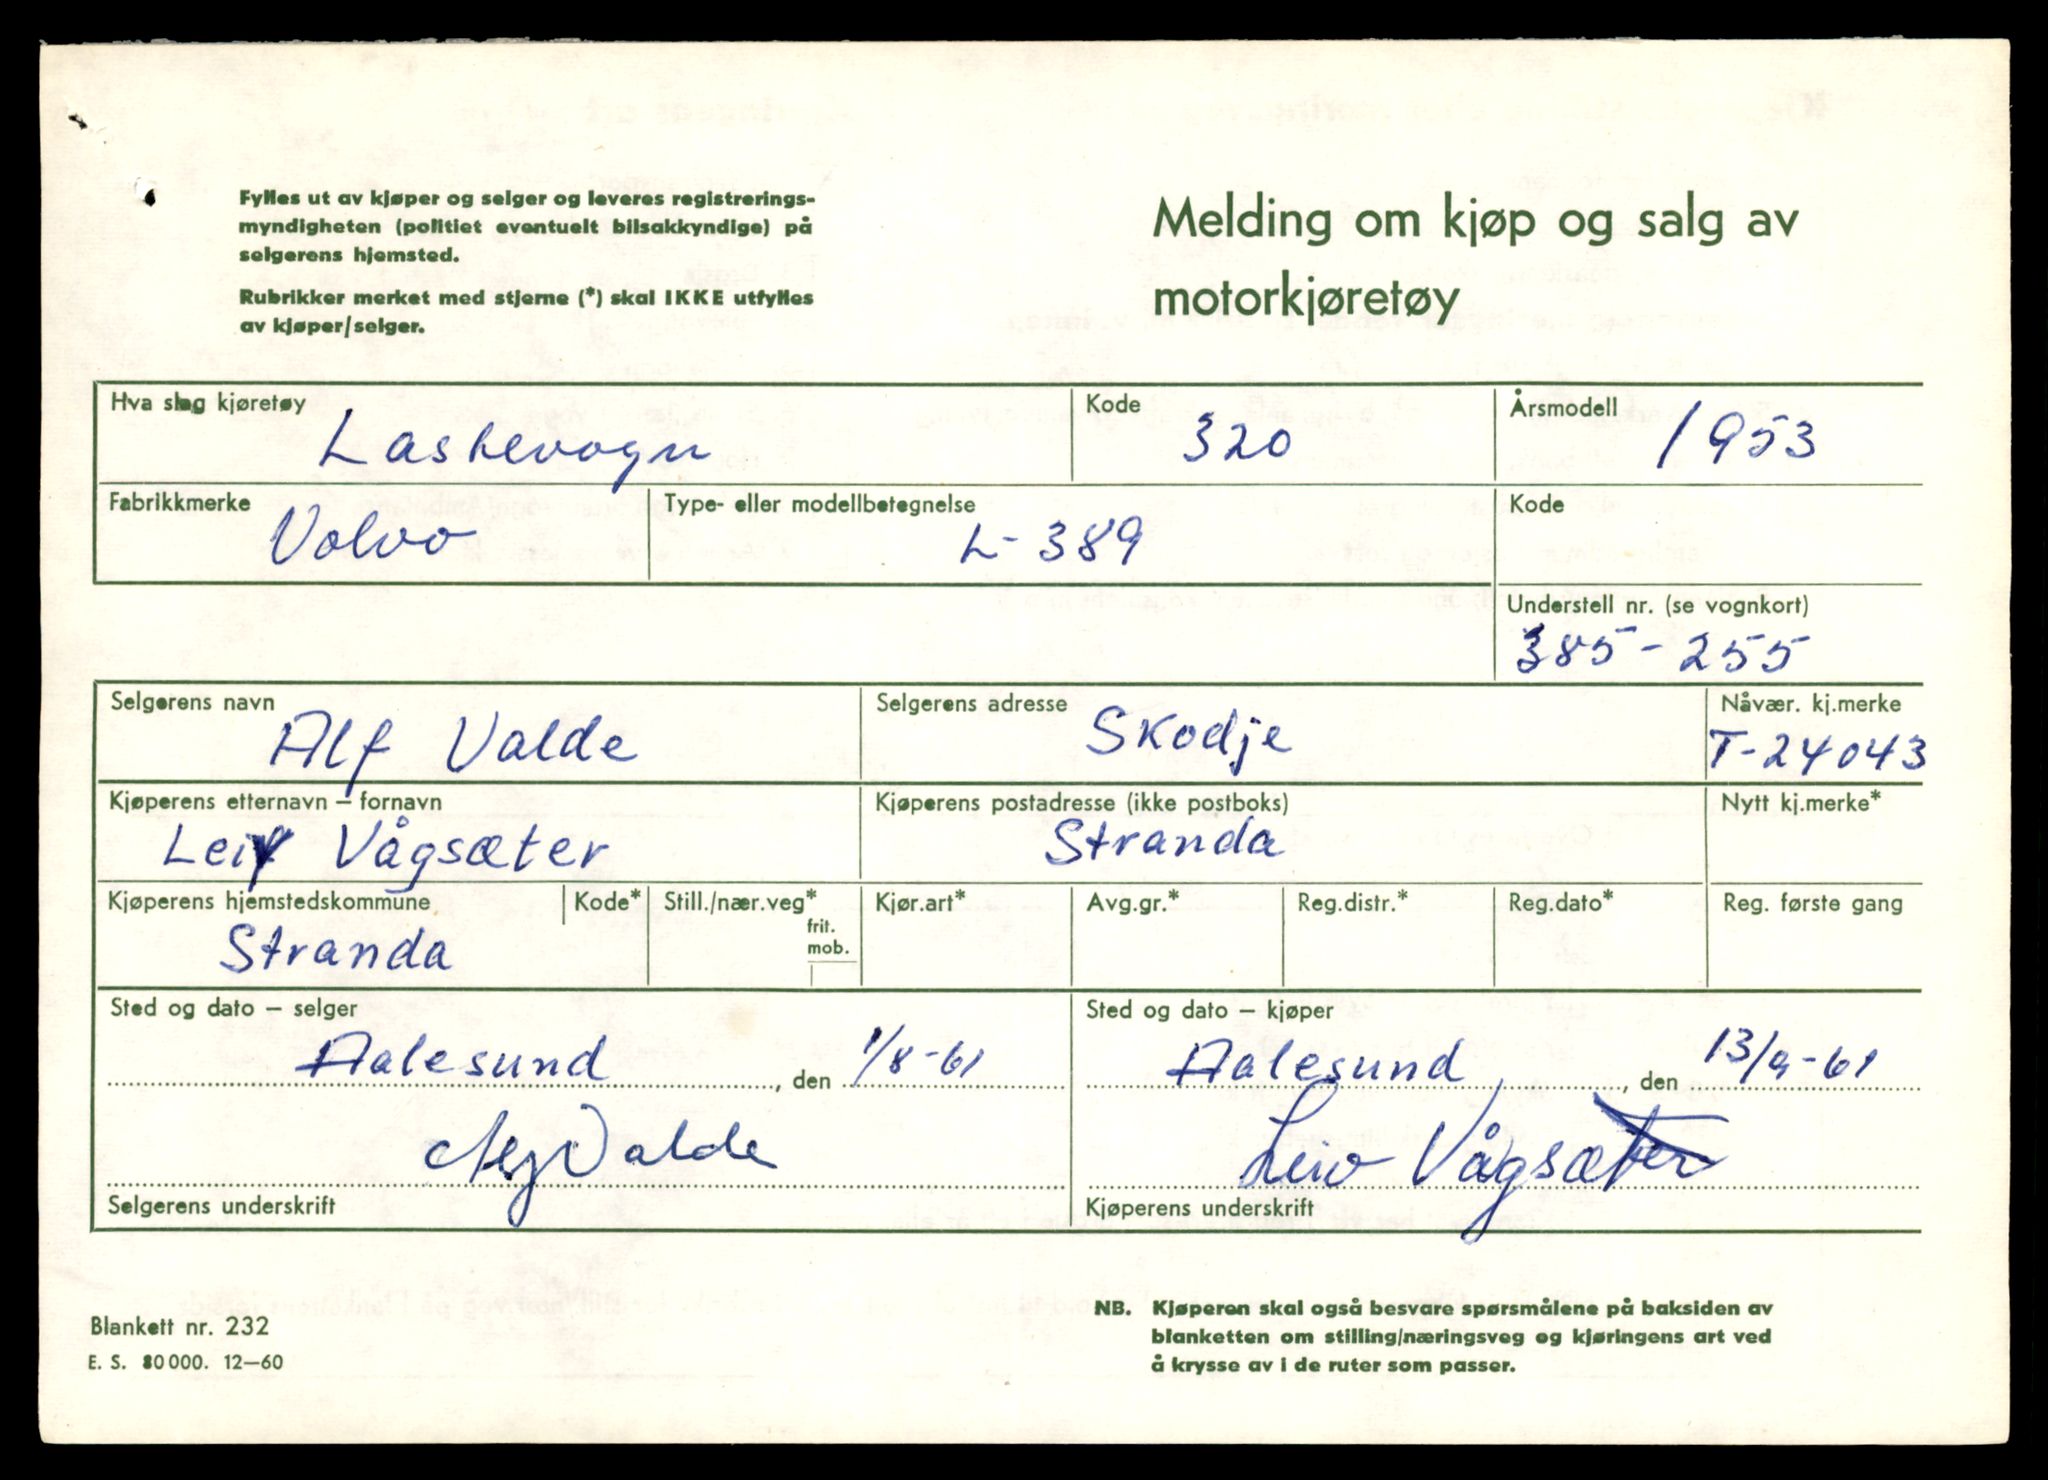 Fylles ut av kjøper og selger og leveres registrerings-
myndigheten (politiet eventuelt bilsakkyndige) på
selgerens hjemsted.
Rubrikker merket med stjerne (*) skal IKKE utfylles
av kjøper/selger.
Melding om kjøp og salg av
motorkjøretøy
Hva slag kjøretøy Kode Årsmodell
Lastevogn 320 1953
Fabrikkmerke Type- eller modellbetegnelse Kode
Volvo L-389
Understell nr. (se vognkort)
385-255
Selgerens navn Selgerens adresse Nåvær. kj.merke
Alf Valde Skodje T-24043
Kjøperens etternavn – fornavn Kjøperens postadresse (ikke postboks) Nytt kj.merke*
Leif Vågsæter Stranda
Kjøperens hjemstedskommune Kode* Still./nær.veg* Kjør.art* Avg.gr.* Reg.distr.* Reg.dato* Reg. første gang
frit.
mob.
Stranda
Sted og dato – selger Sted og dato – kjøper
Aalesund, den 1/8-61 Aalesund, den 13/9-61
Alf Valde Leiv Vågsæter
Selgerens underskrift Kjøperens underskrift
Blankett nr. 232
E. S. 80 000. 12–60
NB. Kjøperen skal også besvare spørsmålene på baksiden av
blanketten om stilling/næringsveg og kjøringens art ved
å krysse av i de ruter som passer.